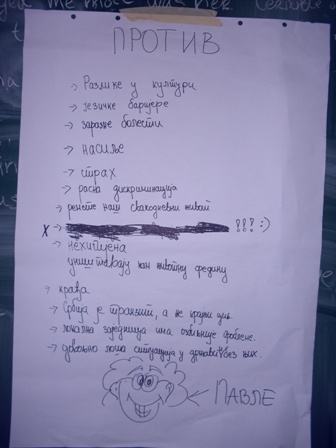 ПРОТИВ
→ Разлике у култури
→ језичке баријере
→ заразне болести
→ насиље
→ страх
→ расна дискриминација
→ ремете наш свакодневни живот
X → !!! :)
→ нехигијена
уништавају нам животну средину
→ крађа
→ Србија је транзит, а не крајњи циљ.
→ локална заједница има озбиљније проблеме.
→ довољно лоша ситуација у држави и без њих.
← ПАВЛЕ